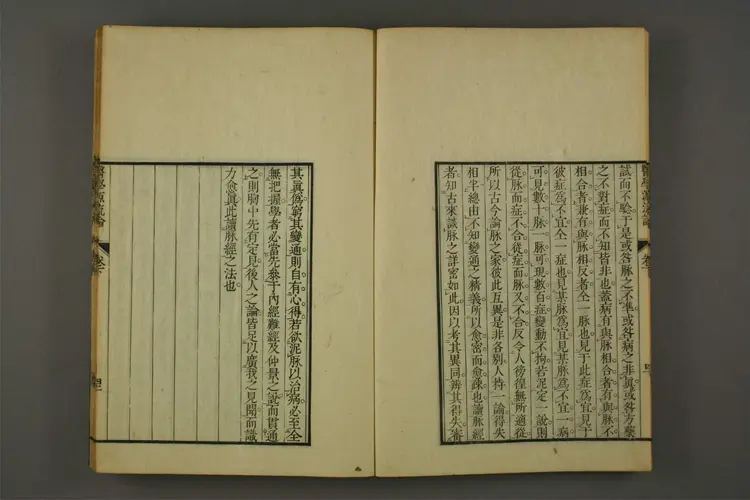 醫學源流論
試而不驗于是或咎脉之不準或咎病之非眞或咎方藥
之不對症而不知皆非也蓋病有與脉相合者有與脉不
相合者兼有與脉相反者仝一脉也見于此症爲宜見于
彼症爲不宜仝一症也見某脉爲宜見某脉爲不宜一病
可見數十脉一脉可現數百症變動不拘若泥定一說則
從脉而症不合從症而脉又不合反令人徬徨無所適從
所以古今論脉之家彼此互異是非各別人持一論得失
相半總由不知變通之精義所以愈密而愈疎也讀脉經
者知古來談脉之詳密如此因以考其異同辨其得失審
其眞僞窮其變通則自有心得若欲泥脉以治病必至全
無把握學者必當先叅于內經難經及仲景之說而貫通
之則胸中先有定見後人之論皆足以廣我之見聞而識
力愈眞此讀脉經之法也
醫學源流論